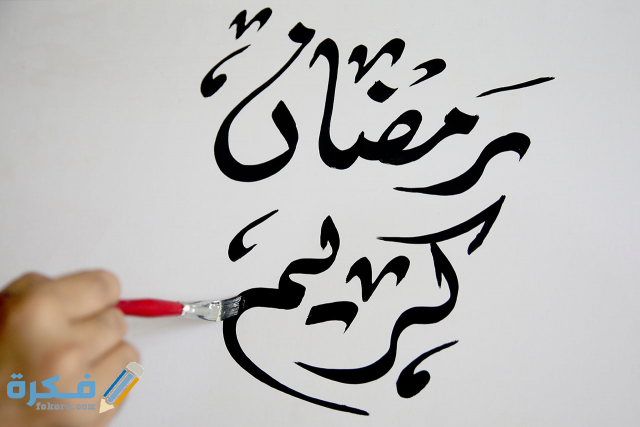 رمضان
كريم
فكرة
fekora.com